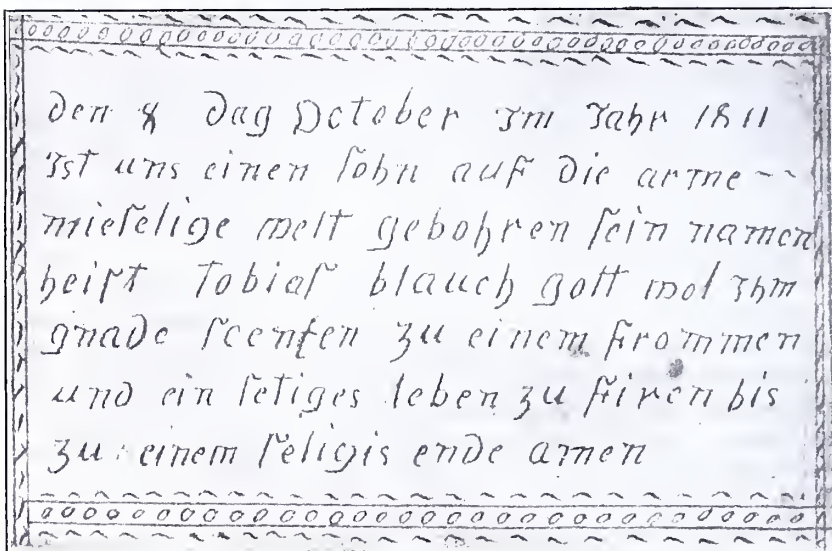 den 8 dag October im Jahr 1811
ist uns einen ſohn auf die arme --
mieſelige welt gebohren ſein namen
heiſt Tobiaſ blauch gott wol ihm
gnade ſcenken zu einem frommen
und ein ſeliges leben zu firen bis
zu einem ſeligis ende amen